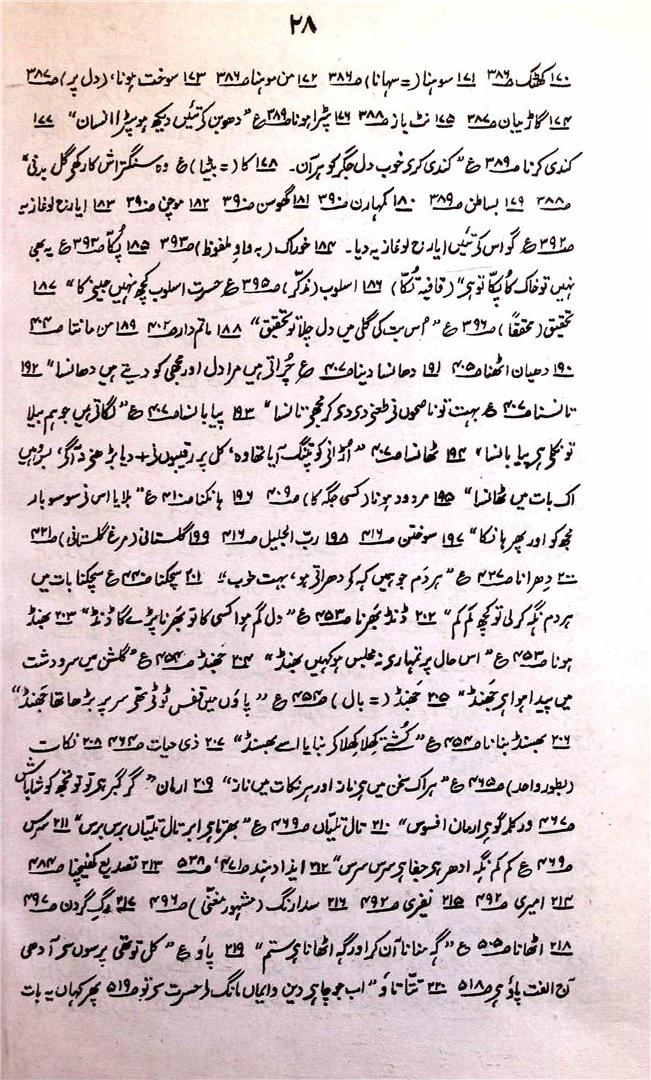 ۲۸
۱۷۰ کھٹک صـ۳۸۶ ۱۷۱ سوہنا (= سہانا) صـ۳۸۶ ۱۷۲ من موہنا صـ۳۸۶ ۱۷۳ سوخت ہونا، (دل پر) صـ۳۸۷
۱۷۴ گاڑیبان صـ۳۸۷ ۱۷۵ نٹ باز صـ۳۸۸ ۱۷۶ پٹرا ہونا صـ۳۸۹ ع "دھوبن کے تئیں دیکھ ہو پٹرا انسان" ۱۷۷
کندی کرنا صـ۳۸۹ ع "کندی کرے خوب دل جگر کو ہر آن۔ ۱۷۸ کا (= بٹیا) ع وہ سنگتراش کا رکھے گل بدنی"
صـ۳۸۸ ۱۷۹ بساطن صـ۳۸۹ ۱۸۰ کمہارن صـ۳۹۰ ۱۸۱ گھوسن صـ۳۹۰ ۱۸۲ موچن صـ۳۹۰ ۱۸۳ ایارح لوغازیہ
صـ۳۹۲ ع گو اس کے تئیں ایارح لوغازیہ دیا۔ ۱۸۴ خوراک (بہ واوِ ملفوظ) صـ۳۹۳ ۱۸۵ پُکّا صـ۳۹۳ ع یہ بھی
نہیں تو خاک کا پُکّا تو ہے" (قافیہ تُکّا) ۱۸۶ اسلوب (مذکّر) صـ۳۹۵ ع حسرت اسلوب کچھ نہیں جینے کا" ۱۸۷
تحقیق (محققاً) صـ۳۹۶ ع "اُس بت کی گلی میں دل چلا تو تحقیق" ۱۸۸ ماتم دار صـ۴۰۲ ۱۸۹ من مانتا صـ۴۰۴
۱۹۰ دھیان اٹھنا صـ۴۰۵ ۱۹۱ دھانسا دینا صـ۴۰۷ ع چُراتے ہیں مرا دل اور مجھی کو دیتے ہیں دھانسا" ۱۹۲
تانسنا صـ۴۰۷ ع بہت تو ناصحوں نے طعنے دے دے کر مجھے تانسا" ۱۹۳ پیا بانسا صـ۴۰۷ ع "لگاتے ہیں جو ہم بیلا
تو نکلے ہے پیا بانسا" ۱۹۴ ٹھانسا صـ۴۰۷ "اُڑانے کو پتنگ آیا تھا وہ، کل پر رقیبوں نے + دیا بڑھنے نہ آگے،
اک بات میں ٹھانسا" ۱۹۵ مردود ہونا (کسی جگہ کا) صـ۴۰۹ ۱۹۶ ہانکنا صـ۴۱۰ ع "بلایا اس نے سو سو بار
مجھ کو اور پھر ہانکا" ۱۹۷ سوختن صـ۴۱۶ ۱۹۸ ربّ الجلیل صـ۴۱۶ ۱۹۹ گلستانی (مرغِ گلستانی) صـ۴۲۱
۲۰۰ دِھرانا صـ۴۳۷ ع "ہر دَم جو ہمیں کہہ کے دھراتے ہو، بہت خوب" ۲۰۱ سچکنا صـ۴۴۰ ع سچکنا بات میں
ہر دم نگہ کرنی تو کچھ کم کم" ۲۰۲ ڈنڈ بھَرنا صـ۴۵۳ ع "دل گم ہوا کسی کا تو بھَرنا پڑے گا ڈنڈ" ۲۰۳ بھنڈ
ہونا صـ۴۵۳ ع "اس حال پر تمہاری نہ مجلس ہو کہیں بھنڈ" ۲۰۴ جھَنڈ صـ۴۵۴ ع "گلشن میں سر و دشت
میں پیدا ہوا ہے جھَنڈ" ۲۰۵ جھَنڈ (= بال) صـ۴۵۴ ع "پاؤں میں قفس ٹوٹی تھی سر پر بڑھا تھا جھَنڈ"
۲۰۶ بھسنڈ بنانا صـ۴۵۴ ع "کُشتے کھِلا کھِلا کر بنایا اسے بھسنڈ" ۲۰۷ ذی حیات صـ۴۶۴ ۲۰۸ نکات
(بطور واحد) صـ۴۶۵ ع "ہر اک سخن میں ہے ناز اور ہر نکات میں ناز" ۲۰۹ ارمان "گر گبر ہے تو تو تجھ کو شاباش
صـ۴۶۷ ور کلمہ گو ہے ارمان افسوس" ۲۱۰ تال تلیّاں صـ۴۶۹ ع "بھرتا ہے ابر تال تلیّاں برس برس" ۲۱۱ سرس
صـ۴۶۹ ع کم کم نگہ ادھر ہے جفا ہے سرس سرس" ۲۱۲ ایذا دہند صـ۴۷۱، صـ۵۲۸ ۲۱۳ تصدیع کھینچنا صـ۴۸۴
۲۱۴ امیری صـ۴۹۲ ۲۱۵ نفیری صـ۴۹۲ ۲۱۶ سدارنگ (مشہور مغنّی) صـ۴۹۶ ۲۱۷ رگِ گردن صـ۴۹۷
۲۱۸ اٹھانا صـ۵۰۵ ع "گہ منانا آن کر اور گہ اٹھانا ہے ستم" ۲۱۹ پاؤ ع "کل تو تھی پرسوں سے آدھی
آج الفت پاؤ ہے صـ۵۱۸ ۲۲۰ تتّا تاؤ "اب جو چاہے دین و ایماں مانگ لے حسرت سے تو صـ۵۱۹ پھر کہاں یہ بات